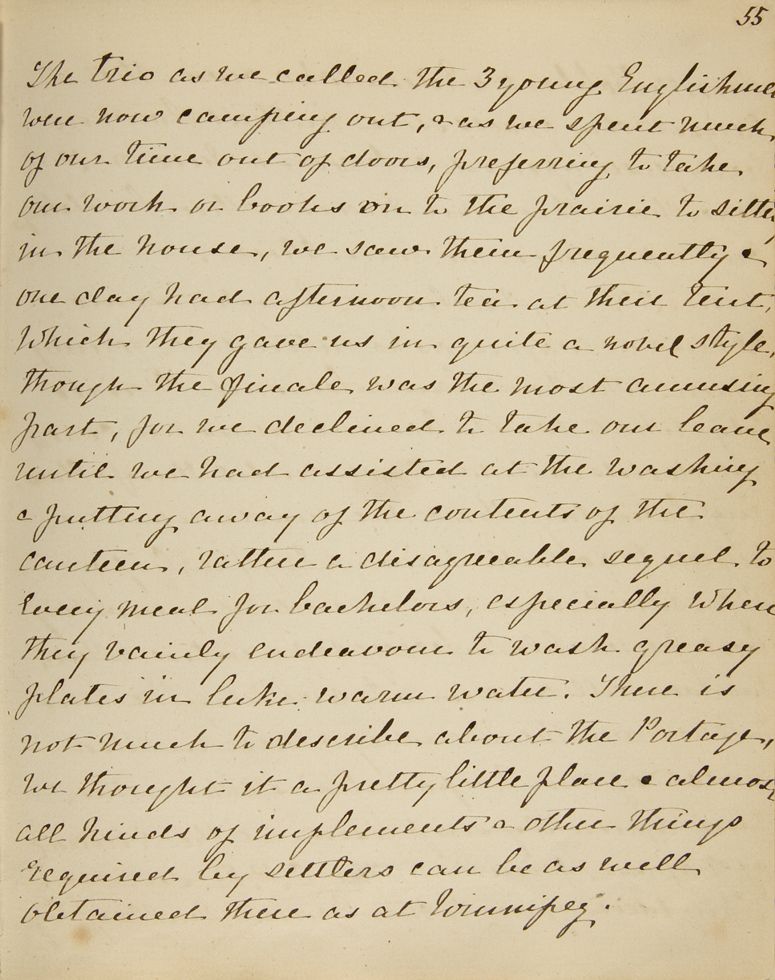 55
The trio as we called the 3 young Englishmen
were now camping out, & as we spent much
of our time out of doors, preferring to take
our work or books on to the prairie to sitting
in the house, we saw them frequently &
one day had afternoon tea at their tent,
which they gave us in quite a novel style,
though the finale was the most amusing
part, for we declined to take our leave
until we had assisted at the washing
& putting away of the contents of the
canteen, rather a disagreeable sequel to
every meal for bachelors, especially when
they vainly endeavour to wash greasy
plates in luke warm water. There is
not much to describe about the Portage,
we thought it a pretty little place & almost
all kinds of implements & other things
required by settlers can be as well
obtained there as at Winnipeg.